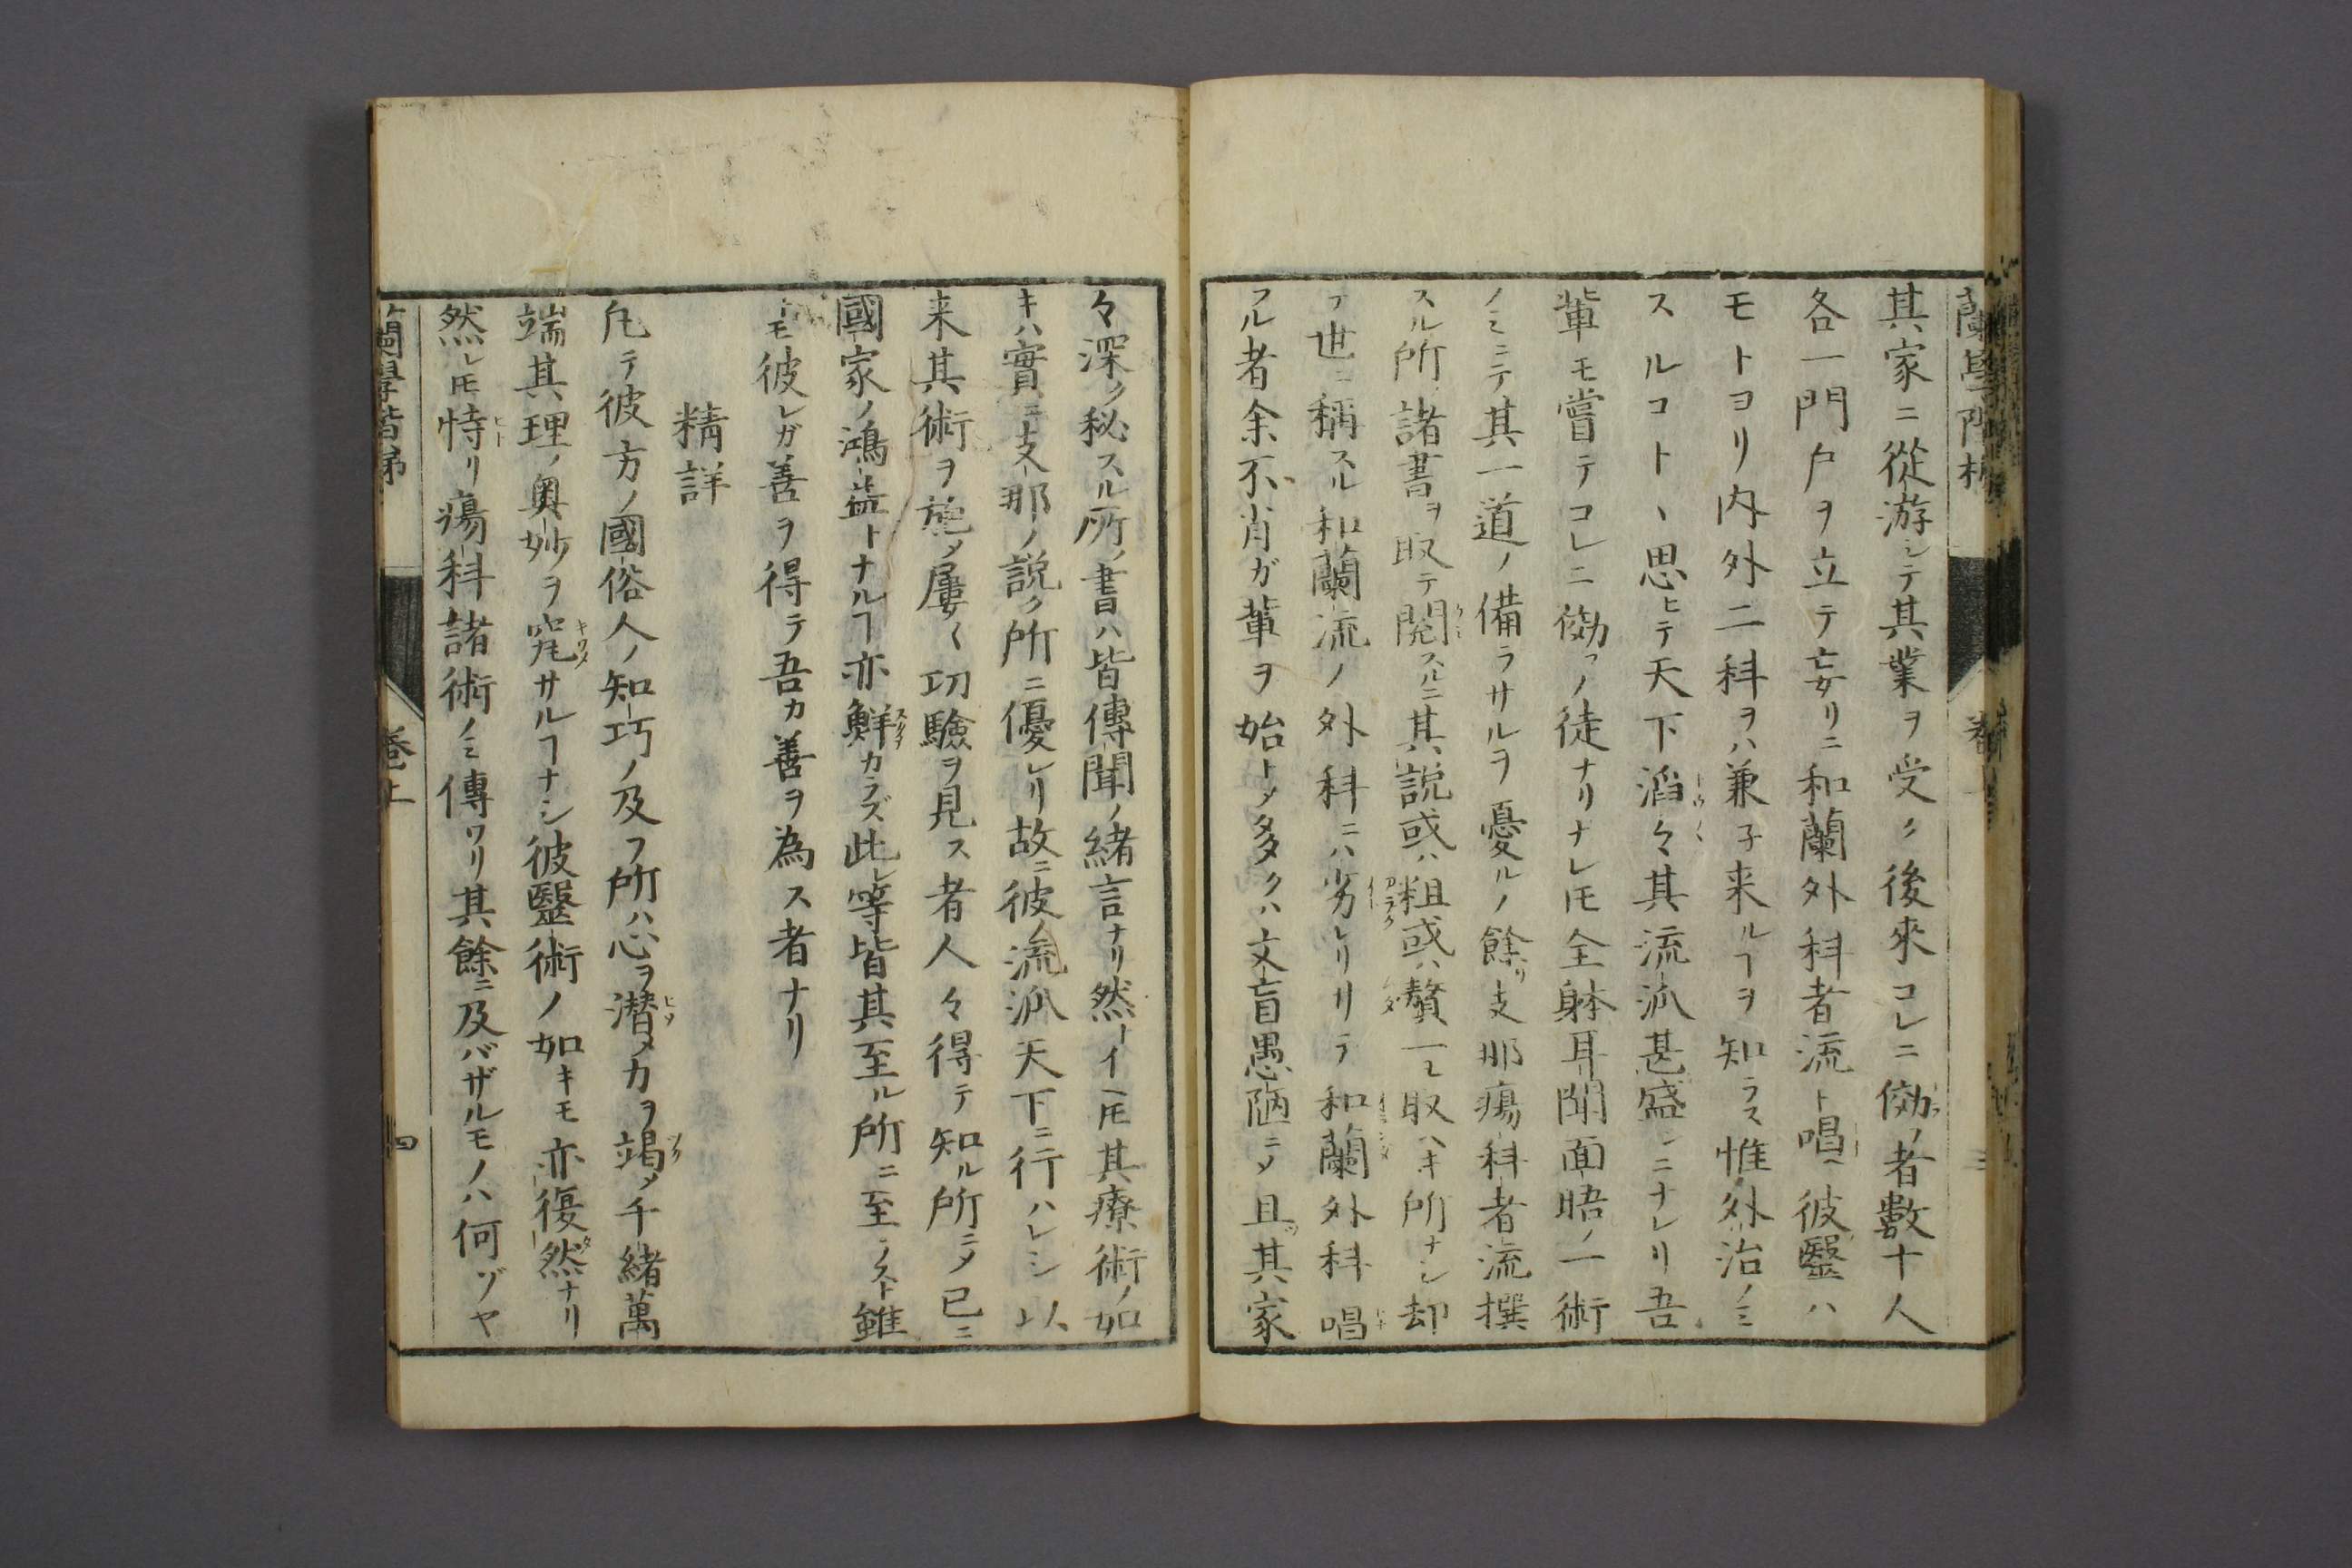 其家ニ從游シテ其業ヲ受ク後來コレニ傚フノ者數十人
各一門戸ヲ立テ妄リニ和蘭外科者流ト唱ヘ彼醫ハ
モトヨリ内外二科ヲハ兼子来ルヿヲ知ラス惟外治ノミ
スルコトヽ思ヒテ天下滔々其流派甚盛ンニナレリ吾
輩モ嘗テコレニ傚フノ徒ナリナレ𪜈全躰耳聞面晤ノ一術
ノミニテ其一道ノ備ラサルヲ憂ルノ餘リ支那瘍科者流撰
スル所ノ諸書ヲ取テ閲スルニ其説或ハ粗或ハ贅一モ取ヘキ所ナシ却
テ世ニ稱スル和蘭流ノ外科ニハ劣レリサテ和蘭外科唱
フル者余不肖ガ輩ヲ始トメ多クハ文盲愚陋ニメ且其家
々深ク秘スル所ノ書ハ皆傳聞ノ緒言ナリ然トイヘ𪜈其療術ノ如
キハ實ニ支那ノ説ク所ニ優レリ故ニ彼ノ流派天下ニ行ハレシ以
来其術ヲ施メ屢〱功驗ヲ見ス者人々得テ知ル所ニメ已ニ
國家ノ鴻益トナルヿ亦鮮カラズ此レ等皆其至ル所ニ至ラスト雖
𪜈彼レガ善ヲ得テ吾カ善ヲ為ス者ナリ
精詳
凡テ彼方ノ國俗人ノ知巧ノ及フ所ハ心ヲ潜メカヲ竭メ千緒萬
端其理ノ奥妙ヲ究サルヿナシ彼醫術ノ如キモ亦復然ナリ
然レ𪜈恃リ瘍科諸術ノミ傳ワリ其餘ニ及バザルモノハ何ゾヤ
蘭學階梯
巻上
四